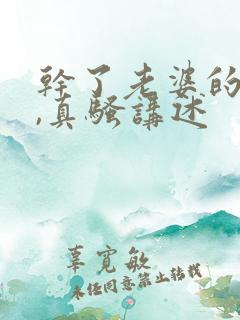 幹了老婆的
,真騷講述
辜寬敏
未经同意禁止转载